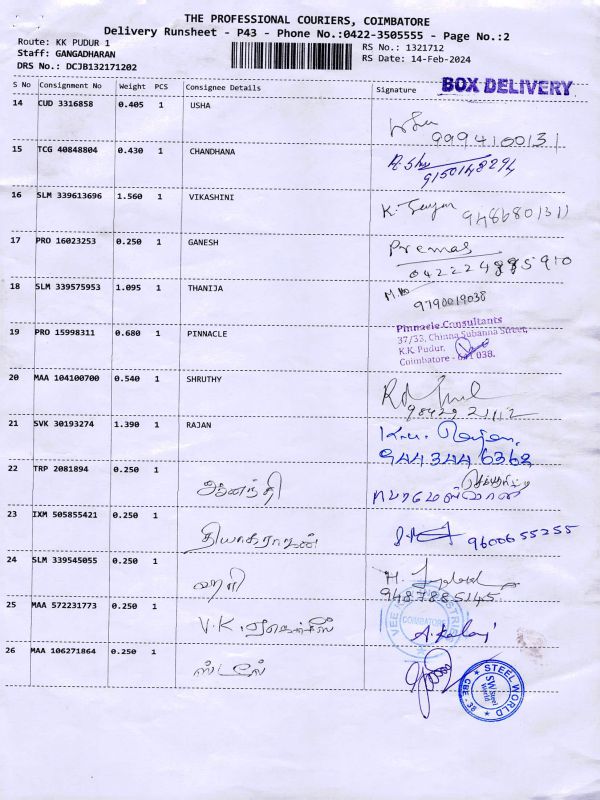 THE PROFESSIONAL COURIERS, COIMBATORE
Delivery Runsheet - P43 - Phone No.:0422-3505555 - Page No.:2
Route: KK PUDUR 1
RS No.: 1321712
Staff: GANGADHARAN
RS Date: 14-Feb-2024
DRS No.: DCJB132171202
BOX DELIVERY
S No Consignment No Weight PCS Consignee Details Signature
14 CUD 3316858 0.405 1 USHA
9994100131
15 TCG 40848804 0.430 1 CHANDHANA
9150148294
16 SLM 339613696 1.560 1 VIKASHINI
17 PRO 16023253 0.250 1 GANESH
Premas
18 SLM 339575953 1.095 1 THANIJA
9790019038
19 PRO 15998311 0.680 1 PINNACLE
Pinnacle Consultants
37/33, Chinna Subanna Street,
K.K Pudur,
Coimbatore - 641 038.
20 MAA 104100700 0.540 1 SHRUTHY
98429 21112
21 SVK 30193274 1.390 1 RAJAN
K.M. Rajan,
944344 6368
22 TRP 2081894 0.250 1
23 IXM 505855421 0.250 1
தியாகராஜன் 9600655255
24 SLM 339545055 0.250 1
ஹரி
9487885145
25 MAA 572231773 0.250 1
V.K.
COIMBATORE
26 MAA 106271864 0.250 1
ஸ்டீல்
STEEL WORLD
SW Steel World
CBE - 38